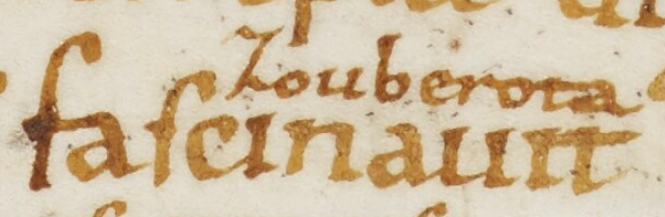 zouberota
fascinauit